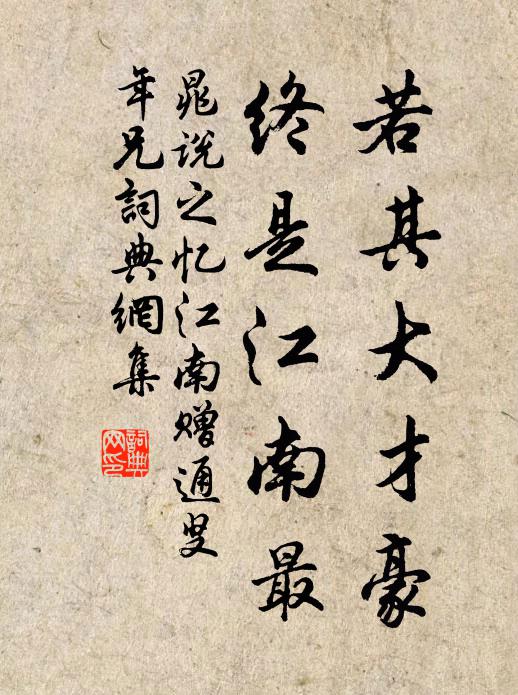 若其大才豪
终是江南最
晁说之忆江南赠通叟
年兄詞典網集
詞典
网印